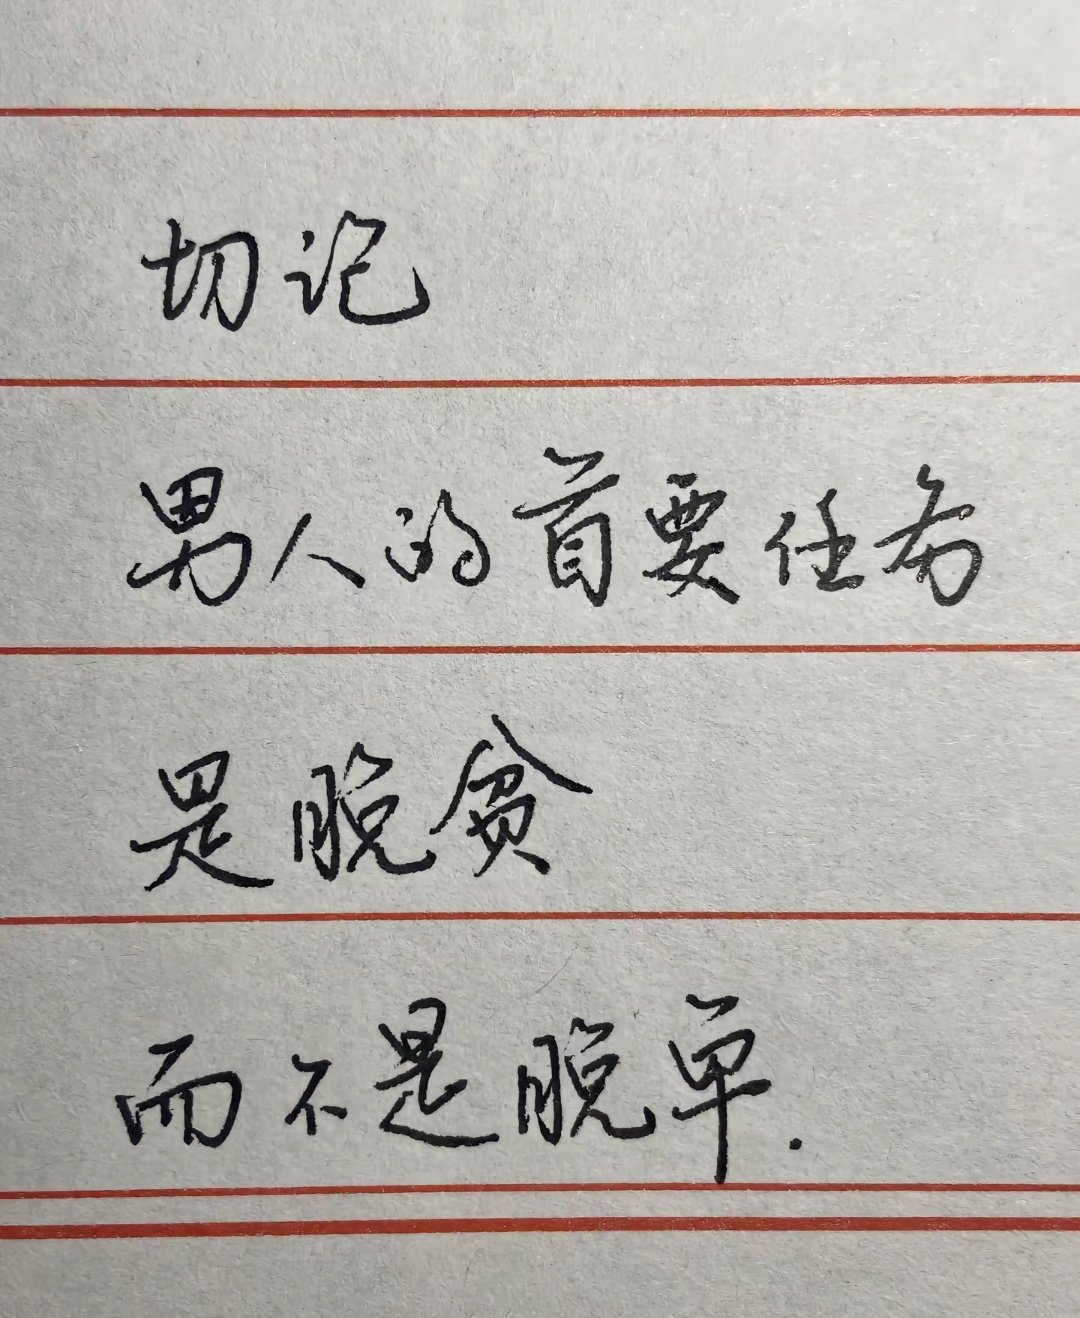 切记
男人的首要任务
是脱贫
而不是脱单.